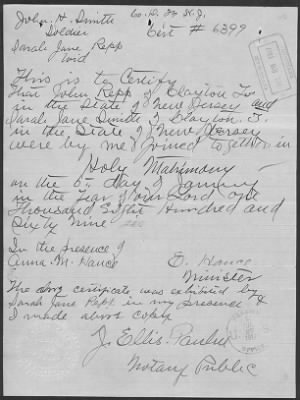 John H. Smith Co. D. 28 N.J.
Soldier Cert # 6399
Sarah Jane Repp
Wid
This is to Certify
That John Repp of Clayton
in the State of New Jersey and
Sarah Jane Smith of Clayton
in the State of New Jersey
were by me joined together in
Holy Matrimony
on the 6th day of January
in the year of our Lord one
Thousand Eight Hundred and
Sixty Nine
In the presence of
Anna M. Hance D. Hance
Minister
The certificate was exhibited by
Sarah Jane Repp in my presence &
I made above copy
J. Ellis
Notary Public